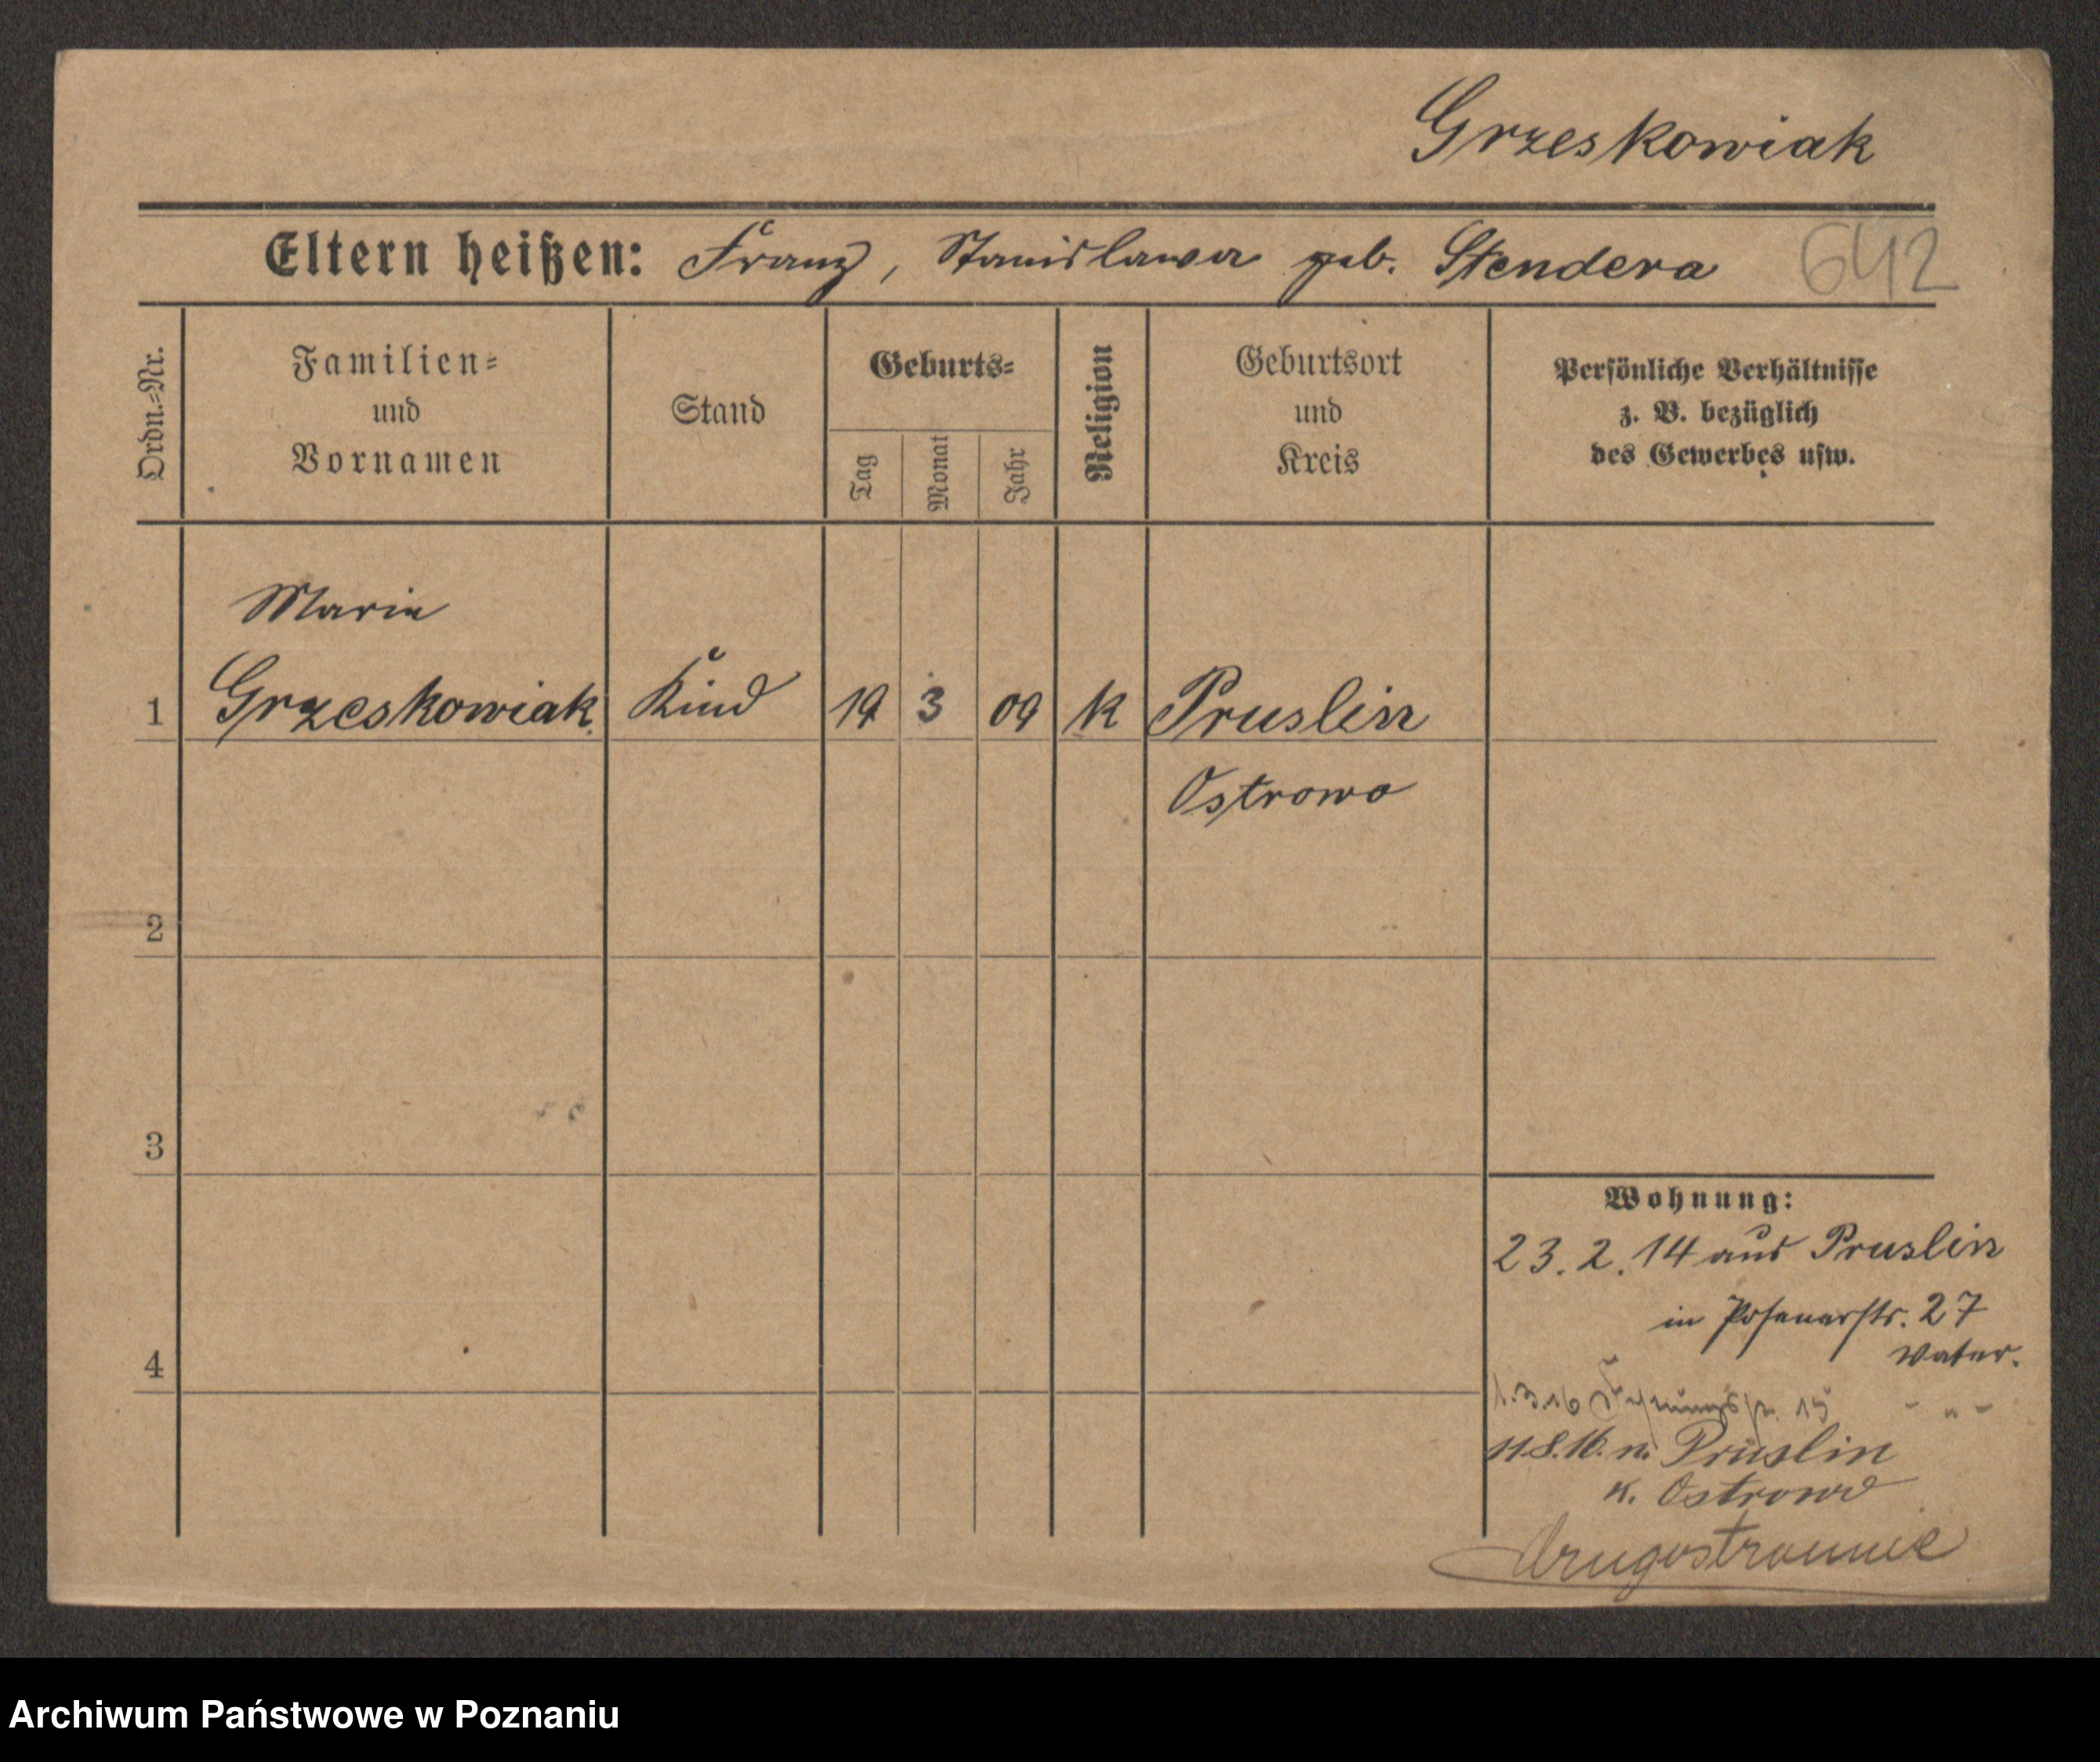 Grzeskowiak
Eltern heißen: Franz, Stanislawa geb. Stendera
642
Ordn.=Nr.
Familien=
und
Vornamen
Stand
Geburts=
Tag
Monat
Jahr
Religion
Geburtsort
und
Kreis
Persönliche Verhältnisse
z. B. bezüglich
des Gewerbes usw.
Marie
1 Grzeskowiak Kind 19 3 09 k Pruslin
Ostrowo
2
3
4
Wohnung:
23. 2. 14 aus Pruslin
in Posenerstr. 27
Vater.
1.3.16 15 - " -
11.8.16. n. Pruslin
K. Ostrowo
drugostronnie
Archiwum Państwowe w Poznaniu